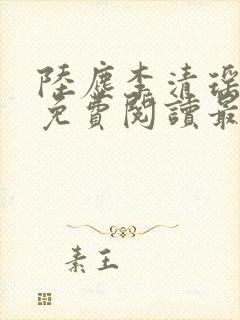 陸塵李清瑤
免費閱讀最
素王